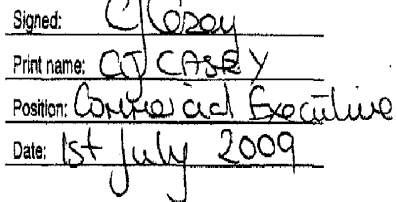 Signed: CJ Casey
Print name: CJ CASEY
Position: Commercial Executive
Date: 1st July 2009